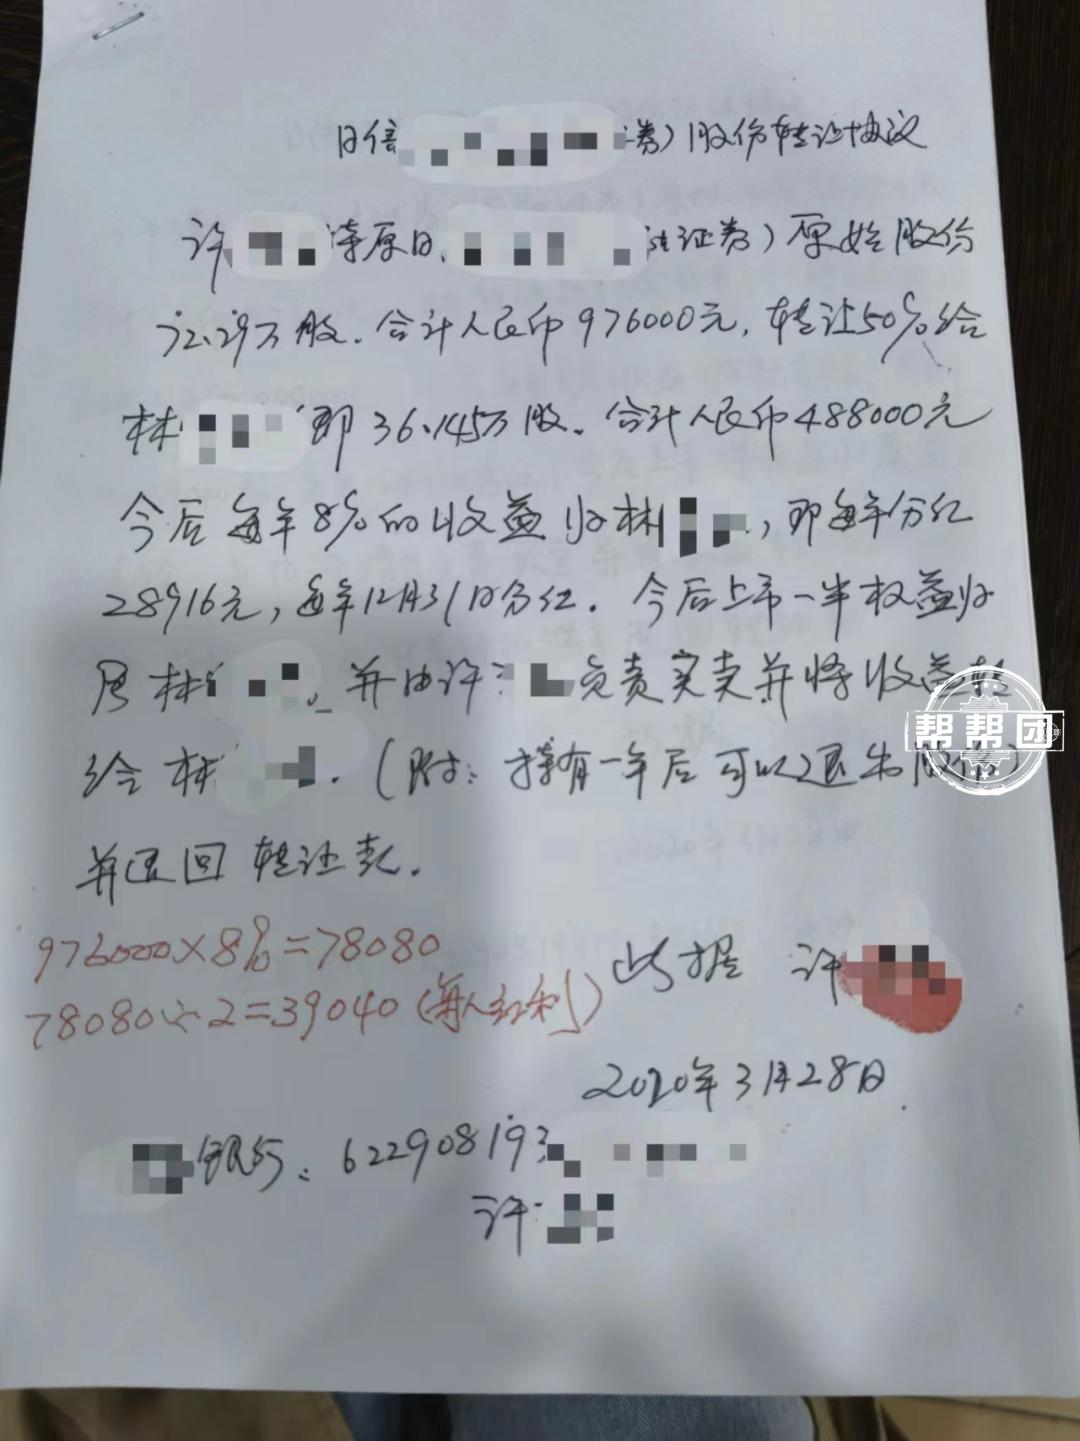 日信 券）股份转让协议
许 持原日 证券）原始股份
72.29万股。合计人民币976000元，转让50%给
林 即36.145万股。合计人民币488000元
今后每年8%的收益归林 ，即每年分红
28916元，每年12月31日分红。今后上市一半权益归
林 。并由许 负责买卖并将收益转
给林 。（附：持有一年后可以退出股份）
帮帮团
并退回转让款。
976000×8%=78080
此据 许
78080÷2=39040（每人红利）
2020年3月28日
银行：622908193
许